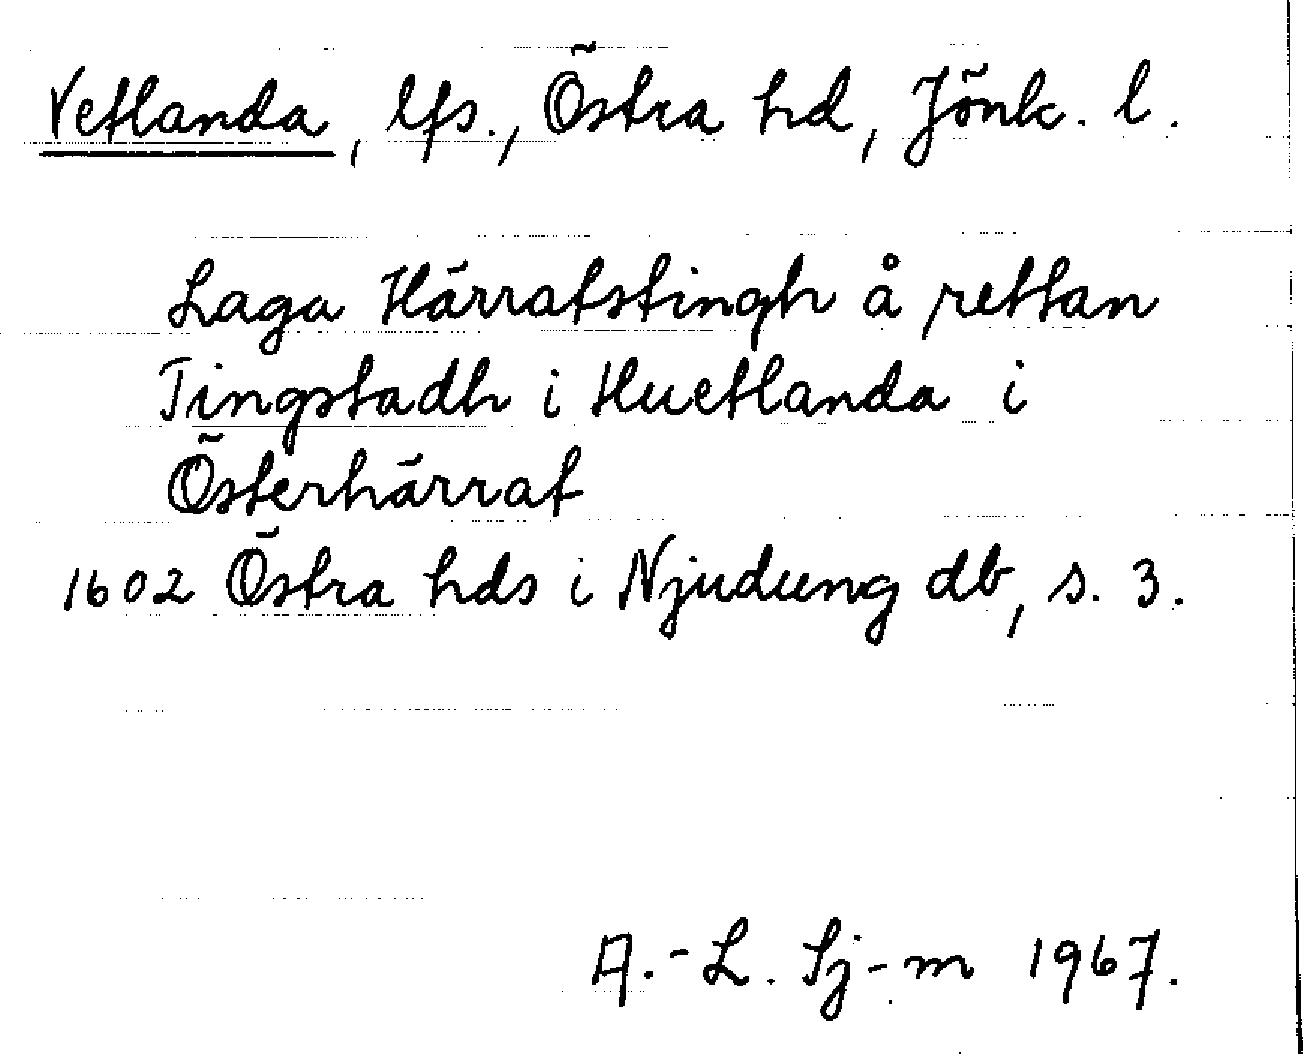 Vetlanda, lfs., Östra hd, Jönk. l.
Laga Härratstingh å rettan
Tingstadh i Huetlanda i
Österhärrat
1602 Östra hds i Njudung db, s. 3.
A.-L. Sj-m 1967.